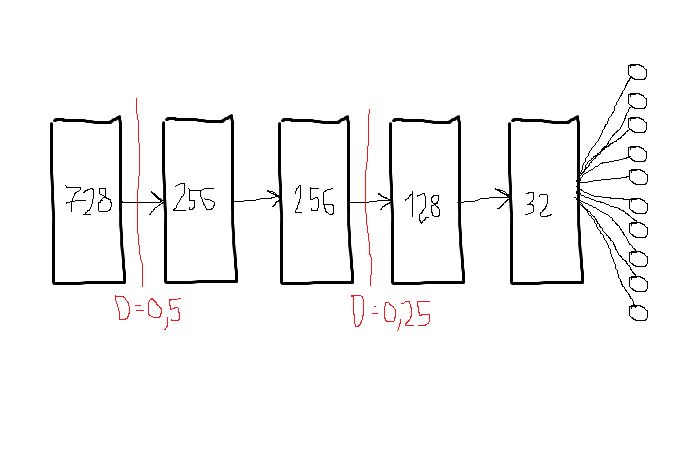 728
256
256
128
32
D=0,5
D=0,25